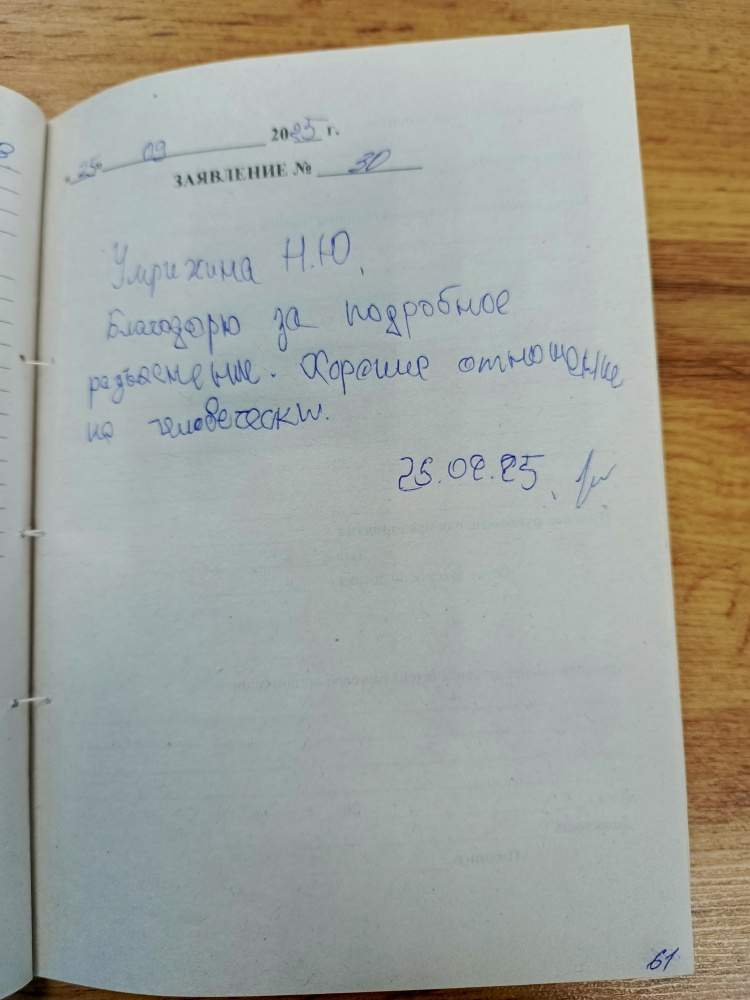 «25» 09 2025 г.
ЗАЯВЛЕНИЕ № 30
Умрихина Н.Ю.
Благодорю за подробное
разъеснение. Хорошие отношение
по человечески.
25.09.25
61